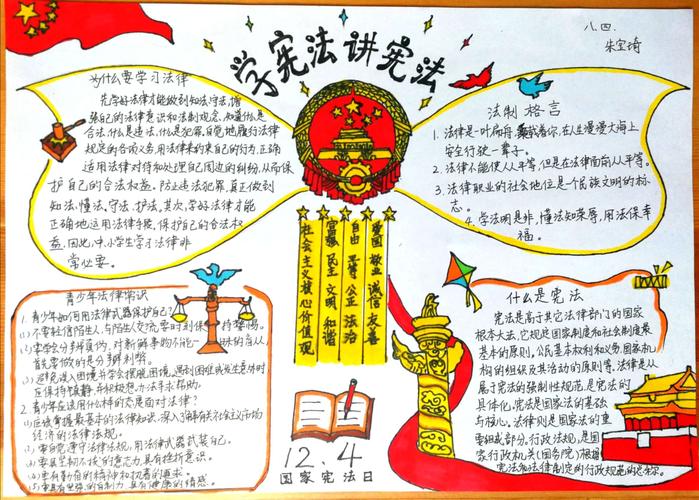 学宪法讲宪法
八.四.
朱宝琦
为什么要学习法律
先学好法律才能做到知法、守法,增
强自己的法律意识和法制观念,知道什么是
合法,什么是违法,什么是犯罪,自觉地履行法律
规定的各项义务,用法律来约束自己的行为,正确
运用法律对待和处理自己周边的纠纷,从而保
护自己的合法权益,防止违法犯罪,真正做到
知法、懂法、守法、护法。其次,学好法律才能
正确地运用法律手段,保护自己的合法权
益,因此,中小学生学习法律非
常必要。
法制格言
1. 法律是一叶扁舟,载着你,在人生漫漫大海上
安全行驶一辈子。
2. 法律不能使人人平等,但是在法律面前人人平等。
3. 法律职业的社会地位是一个民族文明的标
志。
4. 学法明是非,懂法知荣辱,用法保幸
福。
社会主义核心价值观
富强 民主 文明 和谐
自由 平等 公正 法治
爱国 敬业 诚信 友善
青少年法律常识
1. 青少年如何用法律武器保护自己?
(1) 不要轻信陌生人,与陌生人交流要时刻保持警惕。
(2) 要学会分辨真伪,对新鲜事物不能一味的盲从,
首先要做的是分辨利弊。
(3) 避免误入困境并学会摆脱困境,遇到困难或发生意外时
应保持镇静,并积极想办法寻求帮助。
2. 青少年应该用什么样的态度面对法律?
(1) 应该掌握最基本的法律知识,深入了解有关社会主义市场
经济的法律法规。
(2) 要自觉遵守法律法规,用法律武器武装自己。
(3) 要具坚韧不拔的意志力,具有挫折意识。
(4) 要有勤俭的精神和权着的追求。
(5) 要具有坚强的自制力,具有健康的情感。
12.4
国家宪法日
什么是宪法
宪法是高于其它法律部门的国家
根本大法,它规定国家制度和社会制度最
基本的原则,公民基本权利和义务,国家机
构的组织及其活动的原则等。法律是从
属于宪法的强制性规范,是宪法的
具体化。宪法是国家法的基础
与核心,法律则是国家法的重
要组成部分。行政法规,是国
家行政机关(国务院)根据
宪法和法律制定的行政规范的总称。